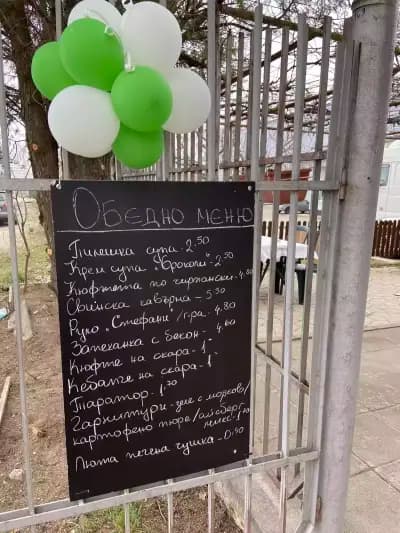 Обедно меню
Пилешка супа - 2.50
Крем супа "броколи" - 2.50
Кюфтета по чирпански - 4.80
Свинска кавърма - 5.50
Руло "Стефани"/г-ра - 4.80
Запеканка с бекон - 4.60
Кюфте на скара - 1-
Кебапче на скара - 1-
Таратор - 1.20
Гарнитури - зеле с моркови/
картофено пюре/айсберг
микс - 1.20
Люта печена чушка - 0.40